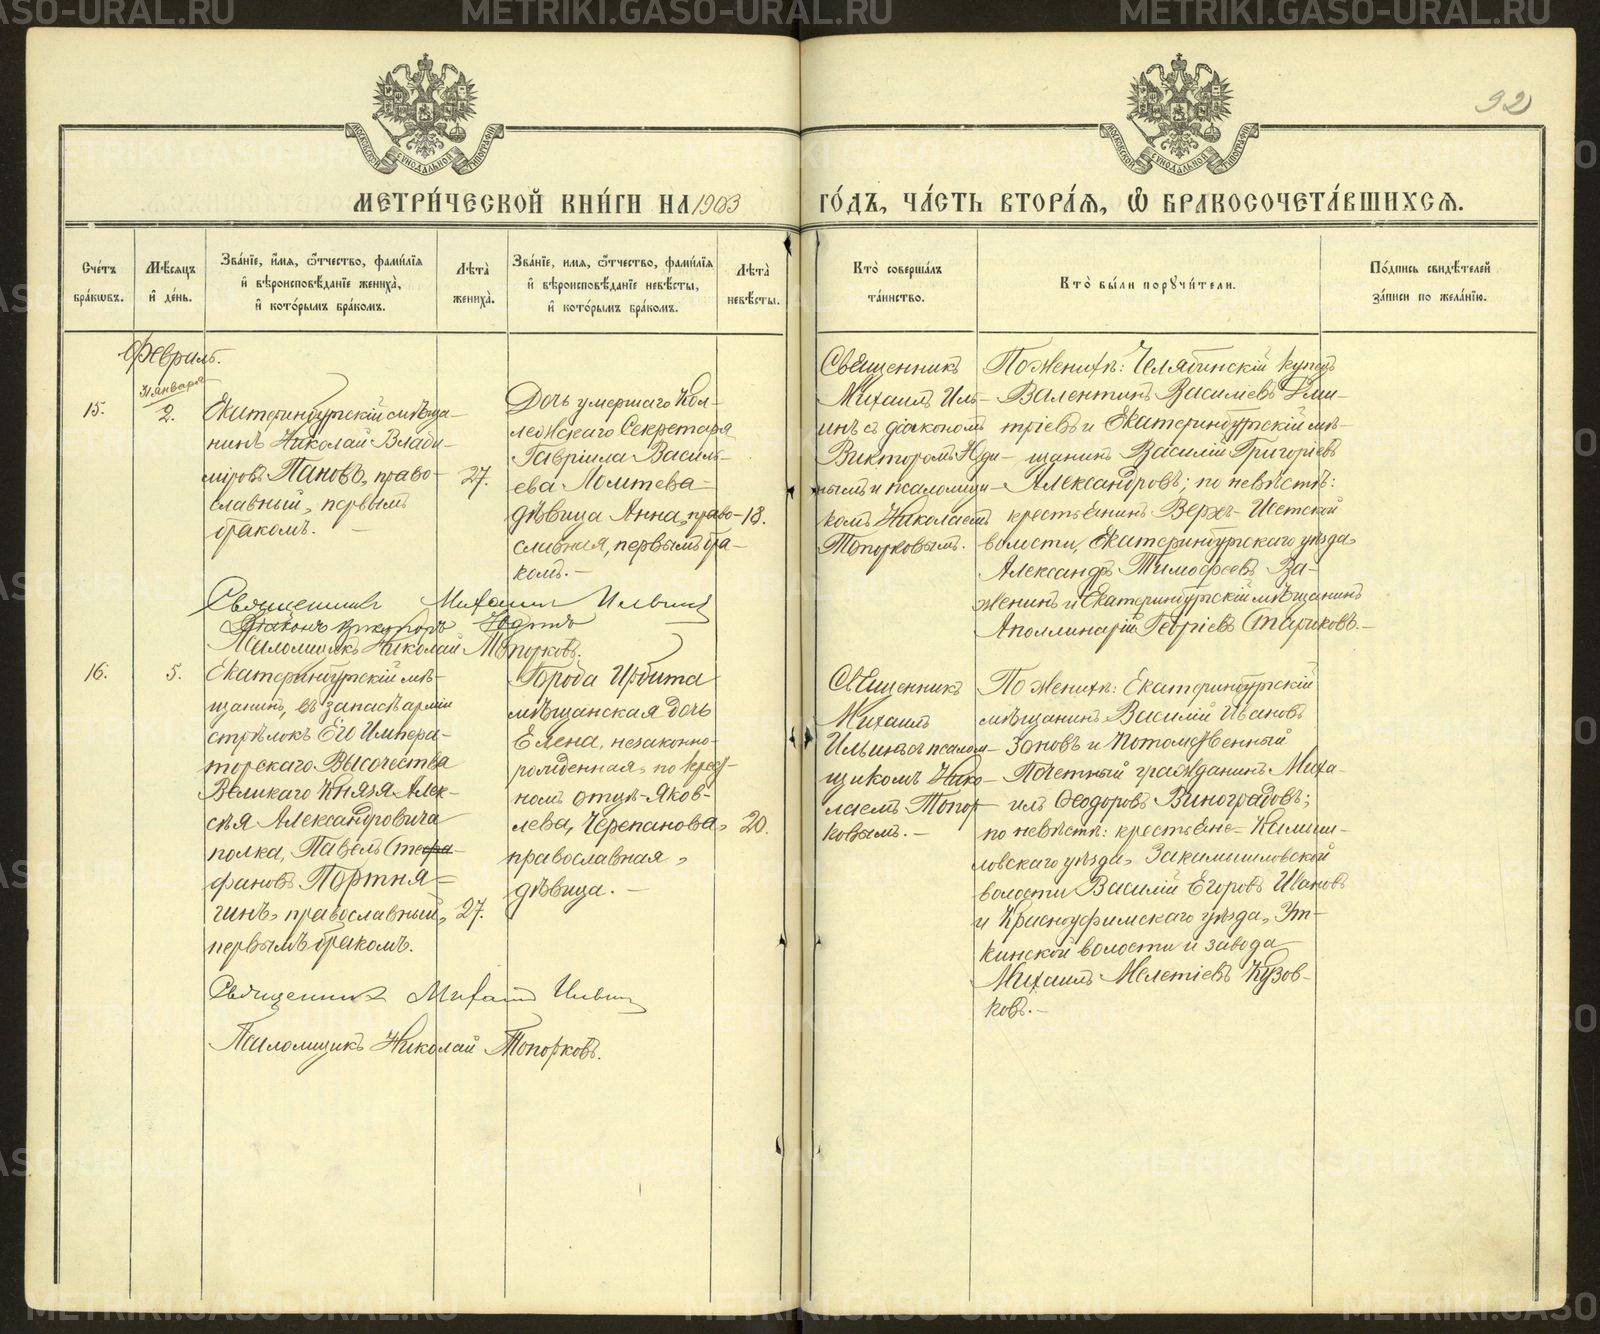 92
МОСКОВСКОЙ СѴНОДАЛЬНОЙ ТИПОГРАФІИ
МОСКОВСКОЙ СѴНОДАЛЬНОЙ ТИПОГРАФІИ
МЕТРИ́ЧЕСКОЙ КНИ́ГИ НА 1903 ГО́ДЪ, ЧА́СТЬ ВТОРА́Ѧ, Ѡ҆ БРАКОСОЧЕТА́ВШИХСѦ.
Сче́тъ бра́кѡвъ.
Мѣ́сяцъ и҆ де́нь.
Зва́нїе, и҆́мѧ, ѻ҆́тчество, фами́лїѧ и҆ вѣроисповѣ́данїе жениха̀, и҆ кото́рымъ бра́комъ.
Лѣта̀ жениха̀.
Зва́нїе, и҆́мѧ, ѻ҆́тчество, фами́лїѧ и҆ вѣроисповѣ́данїе невѣ́сты, и҆ кото́рымъ бра́комъ.
Лѣта̀ невѣ́сты.
Кто̀ соверша́лъ та́инство.
Кто̀ бы́ли порꙋчи́тели.
По́дпись свидѣ́телей за́писи по жела́нїю.
Февраль.
31 января
15.
2.
Екатеринбургскій мѣща-
нинъ Николай Влади-
міровъ Пановъ, право-
славный, первымъ
бракомъ. —
27.
Дочь умершаго Кол-
лежскаго Секретаря
Гавріила Василь-
ева Ломтева
дѣвица Анна, право-
славная, первымъ бра-
комъ. —
18.
Священникъ
Михаилъ Иль-
инъ съ діакономъ
Викторомъ Юди-
нымъ и псаломщи-
комъ Николаемъ
Топорковымъ.
По женихѣ: Челябинскій купецъ
Валентинъ Василіевъ Дми-
тріевъ и Екатеринбургскій мѣ-
щанинъ Василій Григоріевъ
Александровъ; по невѣстѣ:
крестьянинъ Верхъ-Исетской
волости, Екатеринбургскаго уѣзда
Александръ Тимофеевъ За-
женинъ и Екатеринбургскій мѣщанинъ
Аполлинарій Георгіевъ Стариковъ. —
Священникъ Михаилъ Ильинъ
Діаконъ Викторъ Юдинъ
Псаломщикъ Николай Топорковъ.
16.
5.
Екатеринбургскій мѣ-
щанинъ, въ запасѣ арміи
стрѣлокъ Его Импера-
торскаго Высочества
Великаго Князя Алек-
сѣя Александровича
полка, Павелъ Стефа-
фановъ Портня-
гинъ, православный,
первымъ бракомъ.
27.
Города Ирбита
мѣщанская дочь
Елена, незаконно-
рожденная, по крест-
номъ отцѣ - Яков-
лева, Черепанова,
православная,
дѣвица. —
20.
Священникъ
Михаилъ
Ильинъ съ псалом-
щикомъ Нико-
лаемъ Топор-
ковымъ. —
По женихѣ: Екатеринбургскій
мѣщанинъ Василій Ивановъ
Зоновъ и Потомственный
Почетный гражданинъ Миха-
илъ Ѳеодоровъ Виноградовъ;
по невѣстѣ: крестьяне - Камыш-
ловскаго уѣзда, Закамышловской
волости Василій Егоровъ Ивановъ
и Красноуфимскаго уѣзда, Ут-
кинской волости и завода
Михаилъ Мелетіевъ Кузов-
ковъ. —
Священникъ Михаилъ Ильинъ
Псаломщикъ Николай Топорковъ.
METRIKI.GASO-URAL.RU